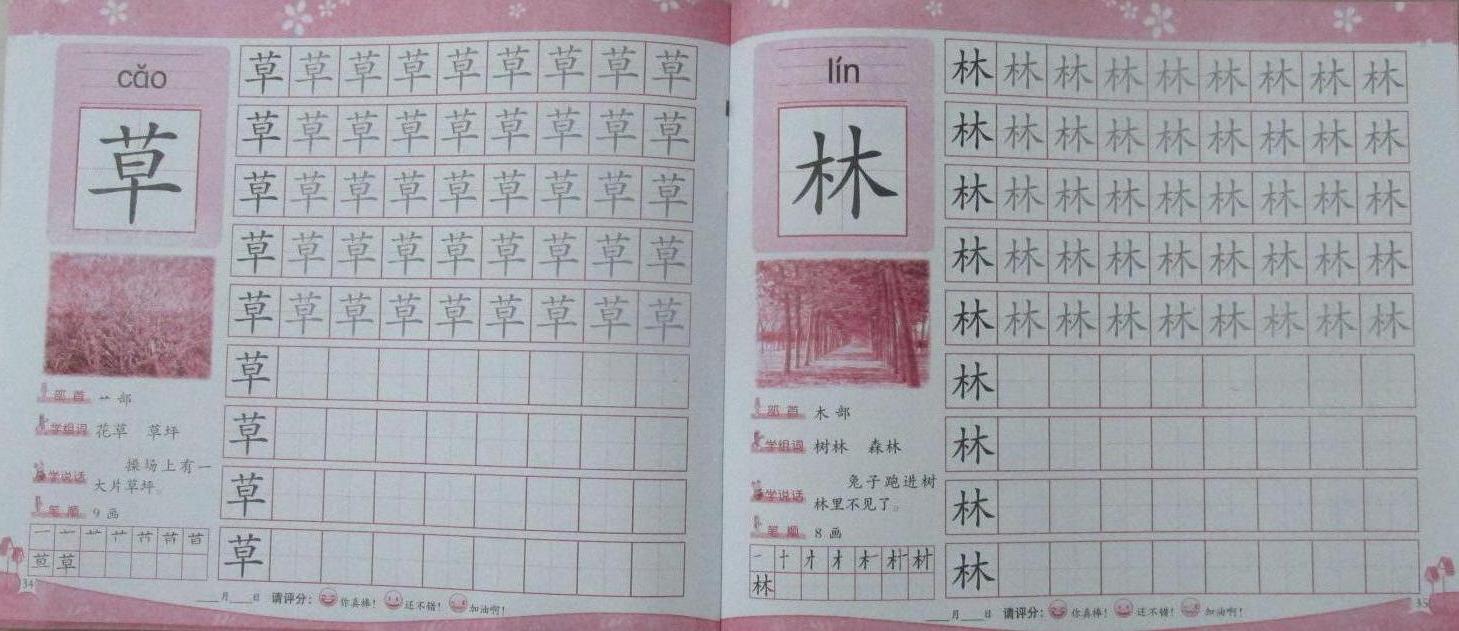 cǎo
草
草草草草草草草草草
草草草草草草草草草
草草草草草草草草草
草草草草草草草草草
草草草草草草草草草
草
草
草
草
部首 艹部
学组词 花草 草坪
学说话 操场上有一
大片草坪。
笔顺 9画
草
34
____月____日 请评分: 你真棒! 还不错! 加油啊!
lín
林
林林林林林林林林林
林林林林林林林林林
林林林林林林林林林
林林林林林林林林林
林林林林林林林林林
林
林
林
林
部首 木部
学组词 树林 森林
学说话 兔子跑进树
林里不见了。
笔顺 8画
一 十 才 木 村
林
35
____月____日 请评分: 你真棒! 还不错! 加油啊!